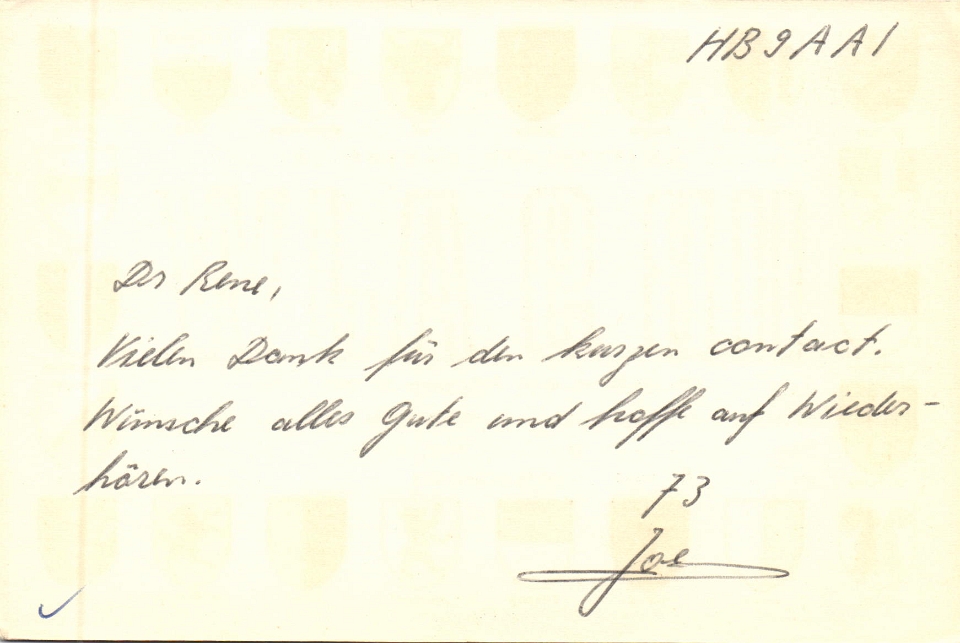 HB9AAI
Dr Rene,
Vielen Dank für den kurzen contact.
Wünsche alles Gute und hoffe auf Wieder-
hören.
73
Joe